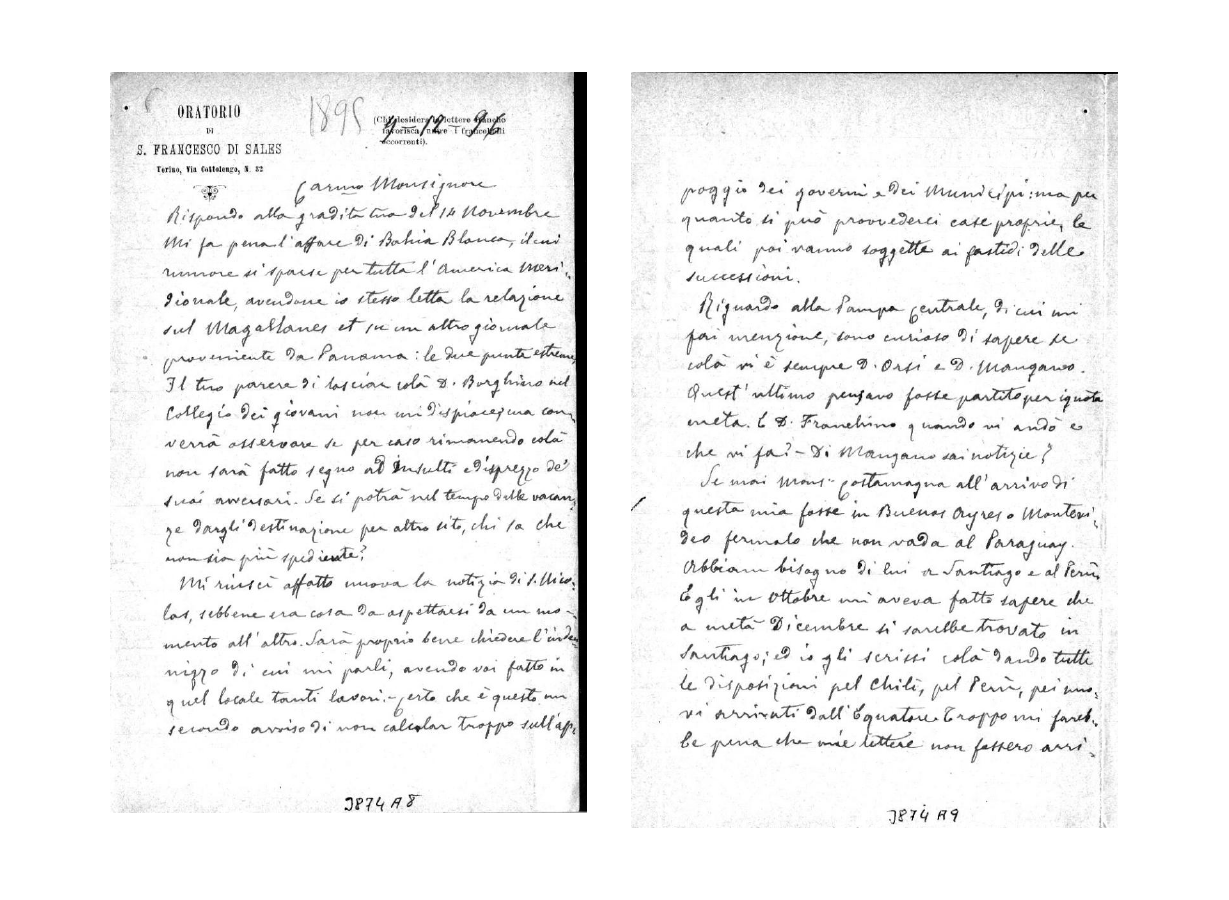 ORATORIO
DI
S. FRANCESCO DI SALES
Torino, Via Cottolengo, N. 32
1895
(Chi desidera lettere franche
favorisca unire i francobolli
occorrenti).
9-12-96
Car.mo Monsignore
Rispondo alla gradita tua del 14 Novembre
Mi fa pena l'affare di Bahia Blanca, il cui
rumore si sparse per tutta l'America Meri-
dionale, avendone io stesso letta la relazione
sul Magallanes et su un altro giornale
proveniente da Panama: le due punte estreme.
Il tuo parere di lasciar colà D. Borghino nel
Collegio dei giovani non mi dispiace; ma con-
verrà osservare se per caso rimanendo colà
non sarà fatto segno ad insulti e disprezzo de'
suoi avversari. Se si potrà nel tempo delle vacan-
ze dargli destinazione per altro sito, chi sa che
non sia più spediente?
Mi riuscì affatto nuova la notizia di S. Nico-
las, sebbene era cosa da aspettarsi da un mo-
mento all'altro. Sarà proprio bene chiedere l'inden
nizzo di cui mi parli, avendo voi fatto in
quel locale tanti lavori. - Certo che è questo un
secondo avviso di non calcolar troppo sull'ap-
J874 A8
poggio dei governi e dei Municipi: ma per
quanto si può provvederci case proprie, le
quali poi vanno soggette ai fastidi delle
successioni.
Riguardo alla Pampa Centrale, di cui mi
fai menzione, sono curioso di sapere se
colà vi è sempre D. Orsi e D. Mangano.
Quest'ultimo pensavo fosse partito per ignota
meta. E D. Franchino quando vi andò e
che vi fa? - Di Mangano sai notizie?
Se mai Mons. Costamagna all'arrivo di
questa mia fosse in Buenos Ayres o Montevi-
deo fermalo che non vada al Paraguay.
Abbiam bisogno di lui a Santiago e al Perù.
Egli in Ottobre mi aveva fatto sapere che
a metà Dicembre si sarebbe trovato in
Santiago; ed io gli scrissi colà dando tutte
le disposizioni pel Chilì, pel Perù, pei nuo-
vi arrivati dall'Equatore. Troppo mi fareb-
be pena che mie lettere non fossero arri-
J874 A9